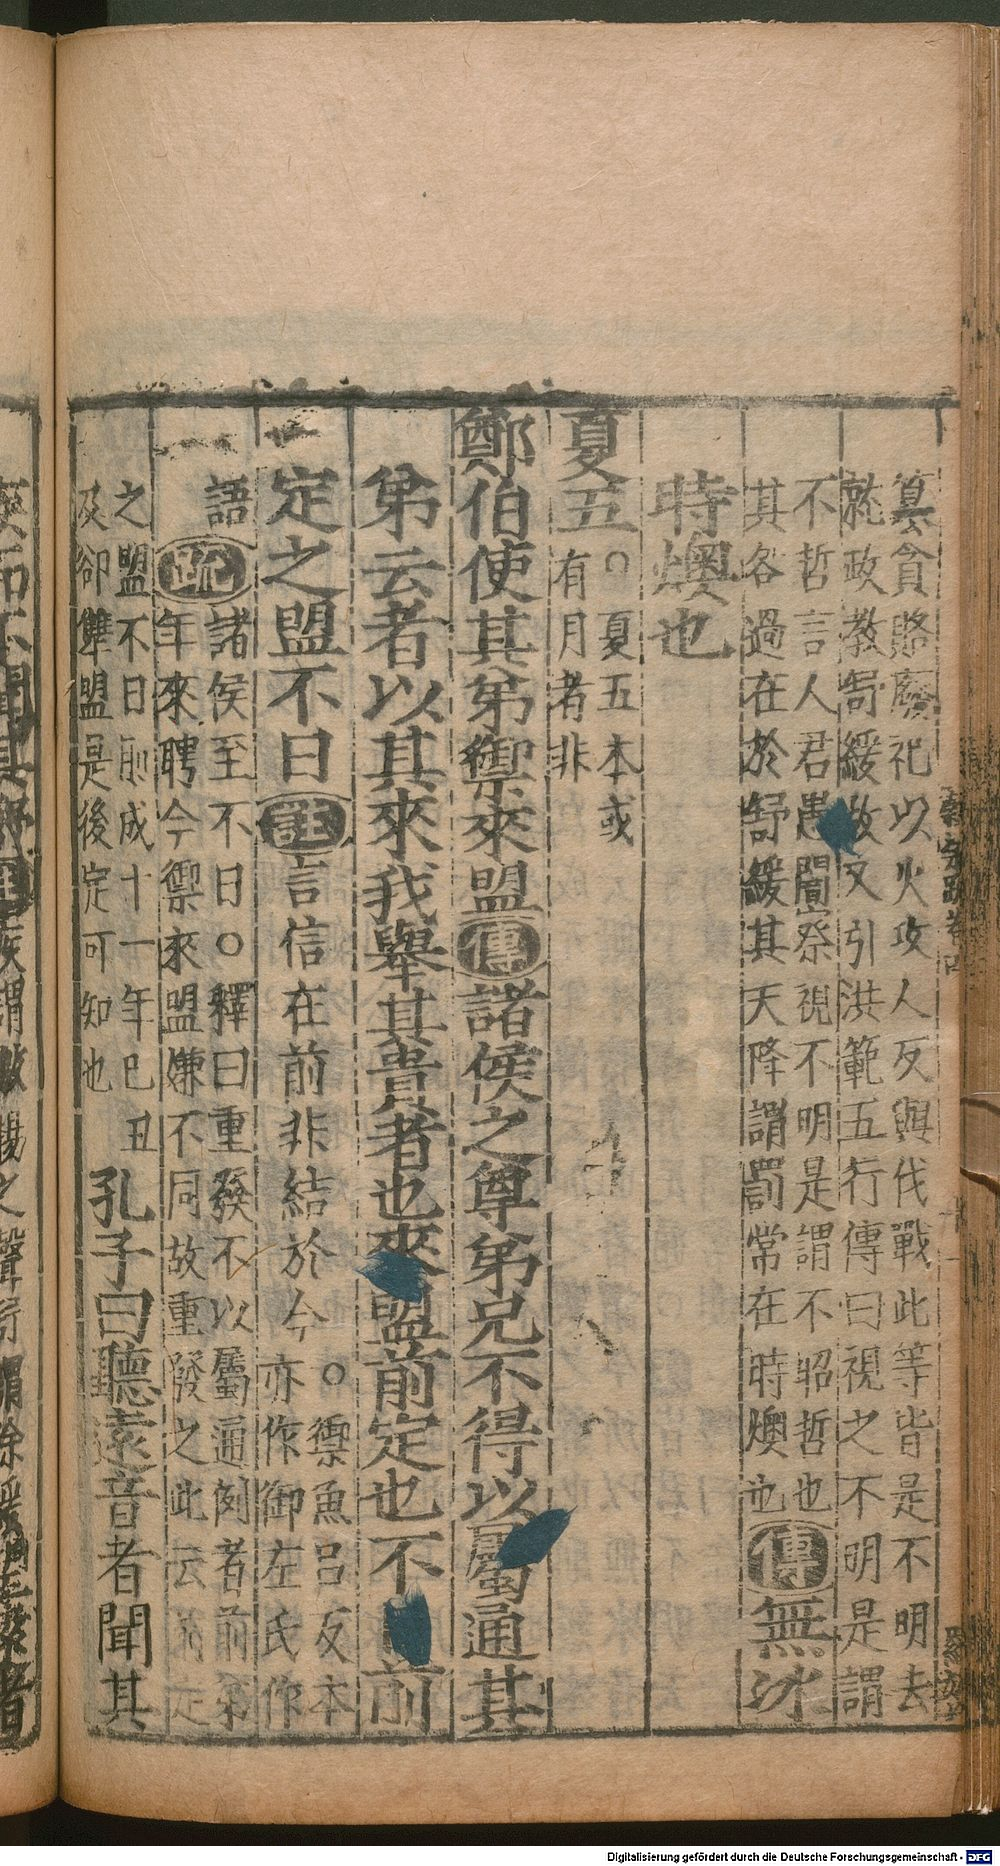 篡貪賂廢祀以火攻人反與伐戰此等皆是不明去
就政教寄緩故又引洪範五行傳曰視之不明是謂
不哲言人君愚闇察視不明是謂不昭哲也
其咎過在於舒緩其天降謂罰常在時燠也 傳 無冰
時燠也
夏五 ○夏五本或
有月者非
鄭伯使其弟禦來盟 傳 諸侯之尊弟兄不得以屬通其
弟云者以其來我舉其貴者也來盟前定也不 前
定之盟不日 註 言信在前非結於今 ○禦魚呂反本
亦作御左氏作
語 疏 諸侯至不日○釋曰重發不以屬通例者前弟
年來聘今禦來盟嫌不同故重發之此云前定
之盟不日則成十一年己丑
及卻犨盟是後定可知也 孔子曰聽遠音者聞其
Digitalisierung gefördert durch die Deutsche Forschungsgemeinschaft - DFG